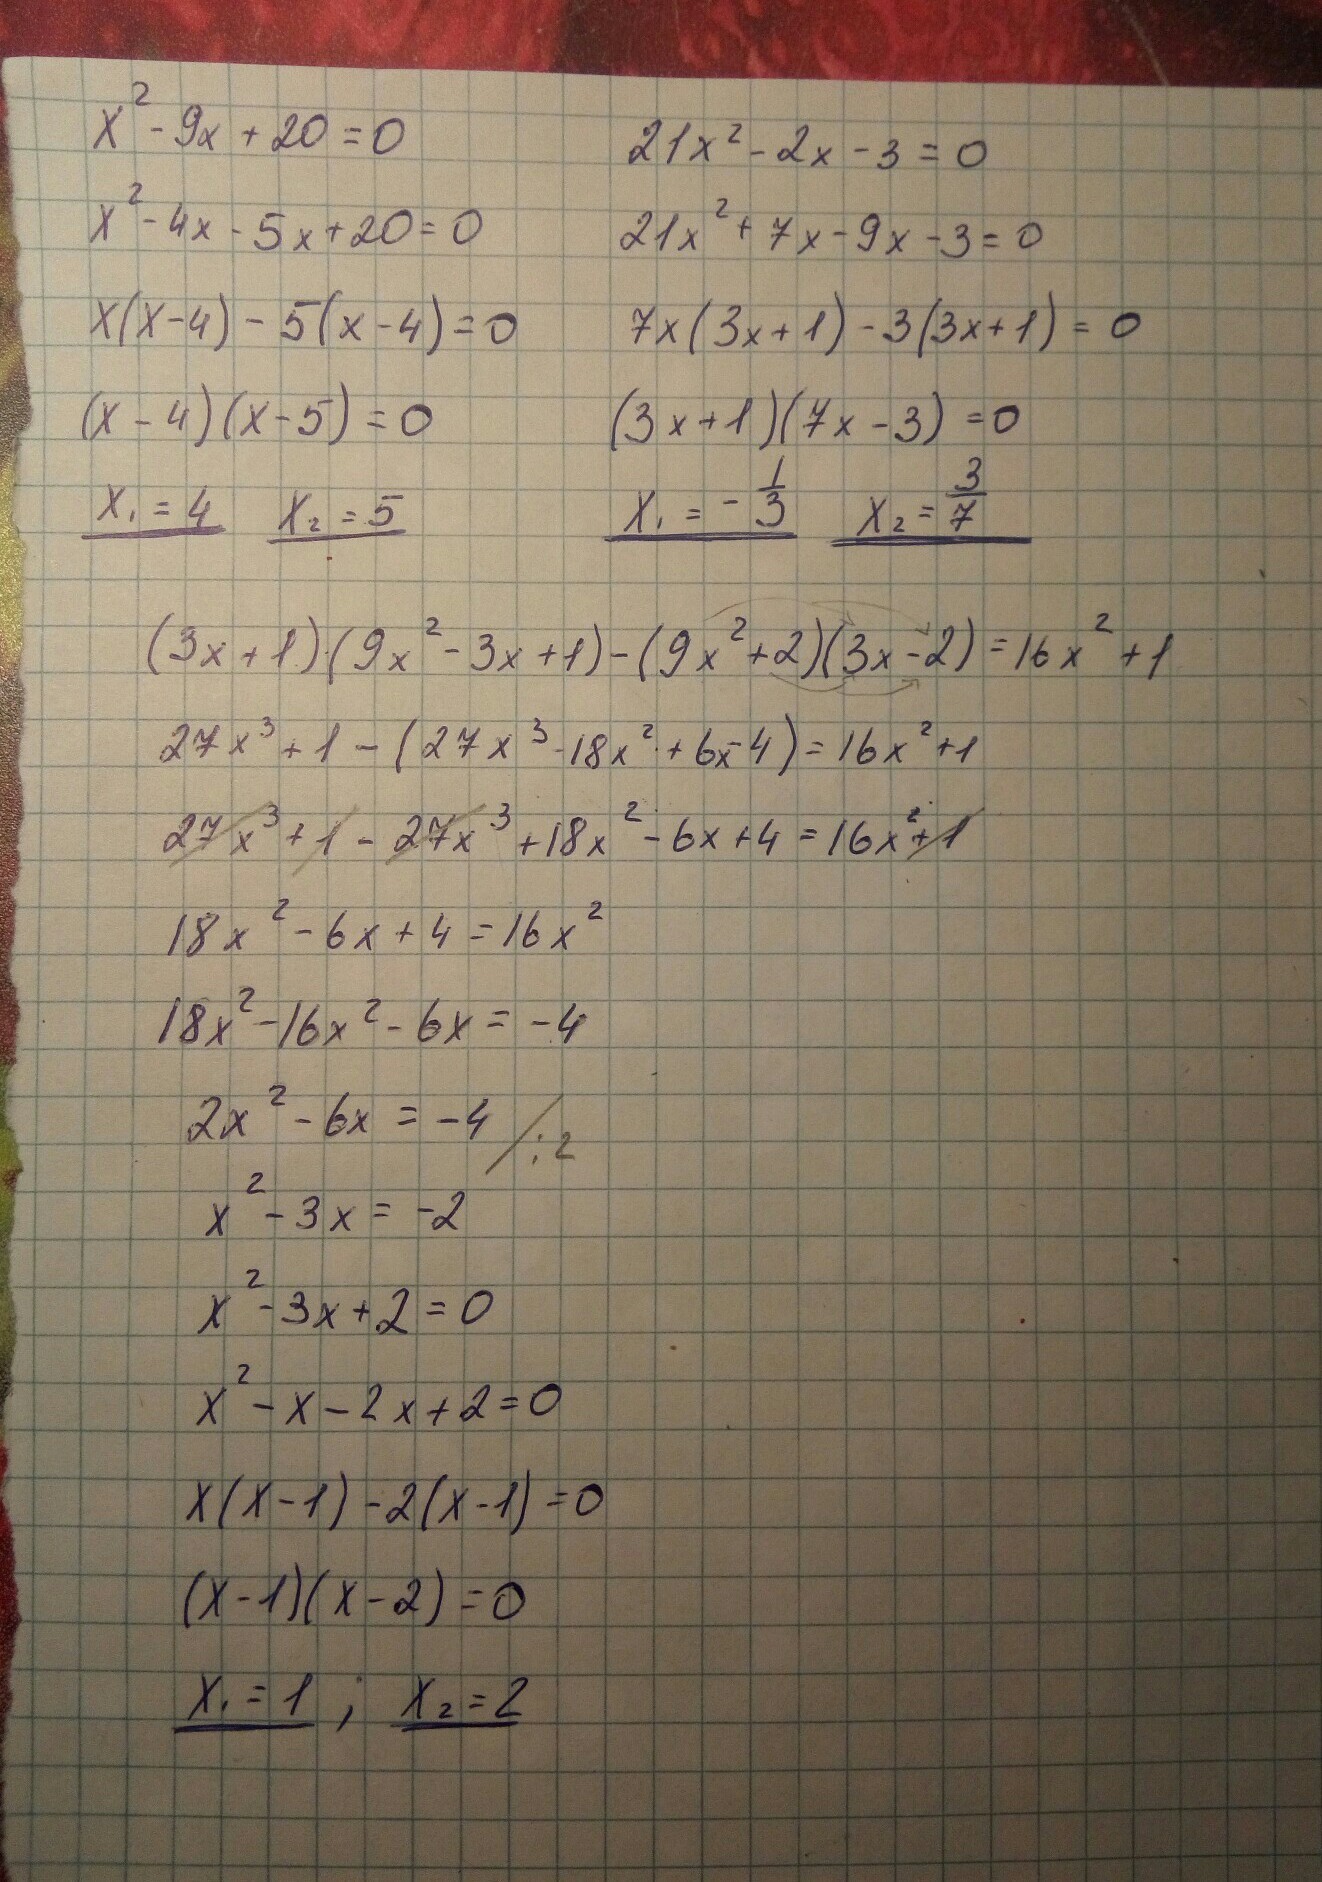 x² - 9x + 20 = 0
x² - 4x - 5x + 20 = 0
x(x - 4) - 5(x - 4) = 0
(x - 4)(x - 5) = 0
x₁ = 4 x₂ = 5
21x² - 2x - 3 = 0
21x² + 7x - 9x - 3 = 0
7x(3x + 1) - 3(3x + 1) = 0
(3x + 1)(7x - 3) = 0
x₁ = - 1/3 x₂ = 3/7
(3x + 1)(9x² - 3x + 1) - (9x² + 2)(3x - 2) = 16x² + 1
27x³ + 1 - (27x³ - 18x² + 6x - 4) = 16x² + 1
27x³ + 1 - 27x³ + 18x² - 6x + 4 = 16x² + 1
18x² - 6x + 4 = 16x²
18x² - 16x² - 6x = -4
2x² - 6x = -4 / : 2
x² - 3x = -2
x² - 3x + 2 = 0
x² - x - 2x + 2 = 0
x(x - 1) - 2(x - 1) = 0
(x - 1)(x - 2) = 0
x₁ = 1 ; x₂ = 2